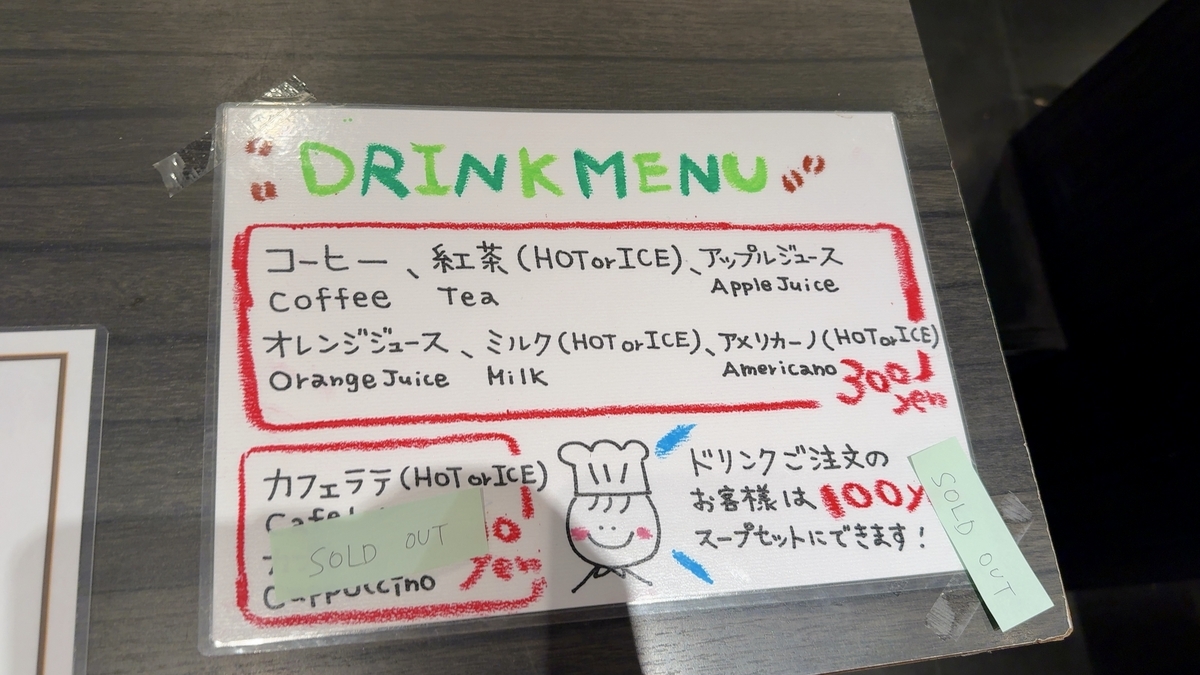 DRINK MENU
コーヒー、紅茶(HOT or ICE)、アップルジュース
Coffee Tea Apple Juice
オレンジジュース、ミルク(HOT or ICE)、アメリカーノ(HOT or ICE)
Orange Juice Milk Americano
300
yen
カフェラテ(HOT or ICE)
SOLD OUT
yen
Cappuccino
ドリンクご注文の
お客様は100y
スープセットにできます!
SOLD OUT